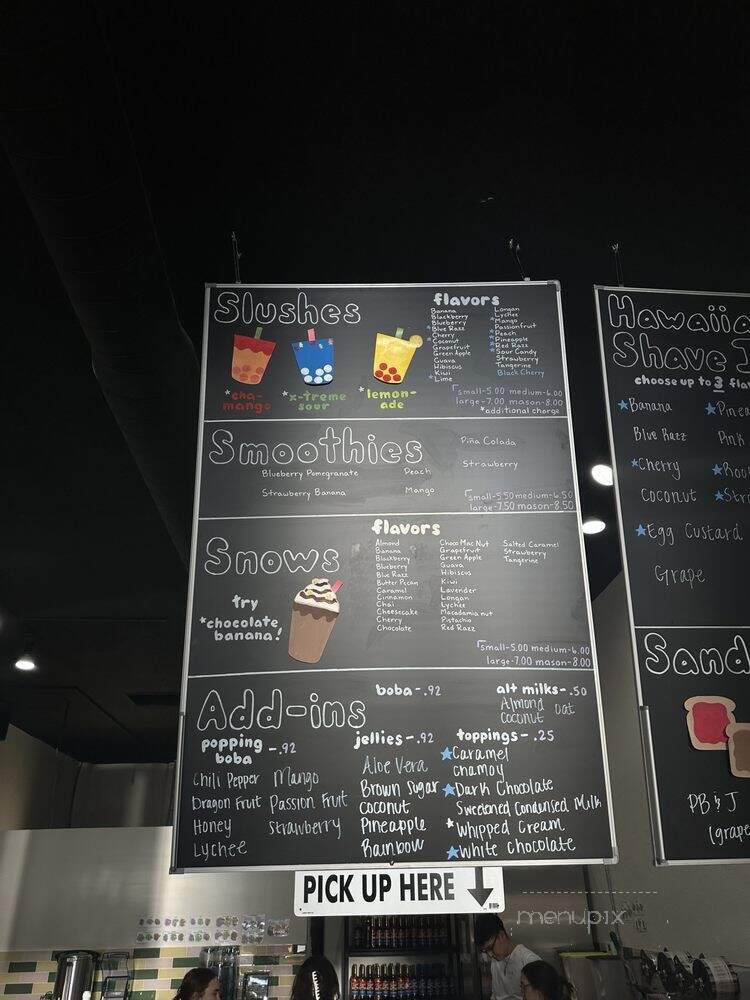 Slushes
*cha-
mango
*x-treme
sour
*lemon-
ade
flavors
Banana
Blackberry
Blueberry
Blue Razz
Cherry
Coconut
Grapefruit
Green Apple
Guava
Hibiscus
Kiwi
Lime
Longan
Lychee
Mango
Passionfruit
Peach
Pineapple
Red Razz
Sour Candy
Strawberry
Tangerine
Black Cherry
small-5.00 medium-6.00
large-7.00 mason-8.00
*additional charge
Smoothies
Blueberry Pomegranate
Strawberry Banana
Peach
Mango
Piña Colada
Strawberry
small-5.50 medium-6.50
large-7.50 mason-8.50
Snows
try
*chocolate
banana!
flavors
Almond
Banana
Blackberry
Blueberry
Blue Razz
Butter Pecan
Caramel
Cinnamon
Chai
Cheesecake
Cherry
Chocolate
Choco Mac Nut
Grapefruit
Green Apple
Guava
Hibiscus
Kiwi
Lavender
Longan
Lychee
Macadamia nut
Pistachio
Red Razz
Salted Caramel
Strawberry
Tangerine
small-5.00 medium-6.00
large-7.00 mason-8.00
Add-ins
boba-.92
alt milks-.50
Almond Oat
Coconut
popping
boba -.92
Chili Pepper Mango
Dragon Fruit Passion Fruit
Honey Strawberry
Lychee
jellies-.92
Aloe Vera
Brown Sugar
Coconut
Pineapple
Rainbow
toppings-.25
Caramel
Chamoy
Dark Chocolate
Sweetened Condensed Milk
*Whipped Cream
White Chocolate
Hawaiia
Shave I
choose up to 3 fla
Banana
Blue Razz
Cherry
Coconut
Egg Custard
Grape
Pinea
Pink
Roo
Str
Sand
PB & J
(grape
PICK UP HERE
menupix